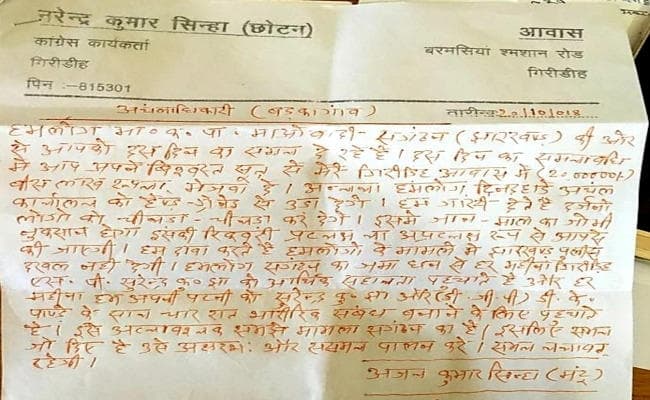 नरेन्द्र कुमार सिन्हा (छोटन)
कांग्रेस कार्यकर्ता
गिरीडीह
पिन :–815301
आवास
बरमसियां श्मशान रोड
गिरीडीह
अंचलाधिकारी (बड़कागांव) तारीख 20/10/018
हमलोग भा० क० पा० माओवादी संगठन (झारखण्ड) की ओर
से आपको दस दिन का समय दे रहे है। दस दिन का समयावधि
में आप अपने विश्वस्त सूत्र से मेरे गिरिडीह आवास में (20,00000/)
बीस लाख रूपया भेजवा दे। अन्यथा हमलोग दिनदहाड़े अंचल
कार्यालय को हैण्ड ग्रेनेड से उड़ा देगी। हम गारंटी देते है दर्जनो
लोगों को चीथड़ा-चीथड़ा कर देगें। इसमें जान-माल का जो भी
नुकसान होगा इसकी रिकवरी प्रत्यक्ष या अप्रत्यक्ष रूप से आपसे
की जाएगी। हम दावा करते है हमलोगो के मामले में झारखण्ड पुलिस
दखल नही देगी। हमलोग संगठन का जमा धन से हर महीना गिरिडीह
एस० पी० सुरेन्द्र क० झा को आर्थिक सहायता पहुंचाते है और हर
महीना हम अपनी पत्नी को सुरेन्द्र कु० झा और (डी० जी० पी) डी० के०
पाण्डे के साथ चार रात शारीरिक संबंध बनाने के लिए पहुंचाते
है। इसे अत्यावश्यक समझे मामला संगठन का है। इसलिए समय
जो दिए है उसे अक्षरशः और ससमय पालन करें।
रहेगी।
अजय कुमार सिन्हा (मंटू)